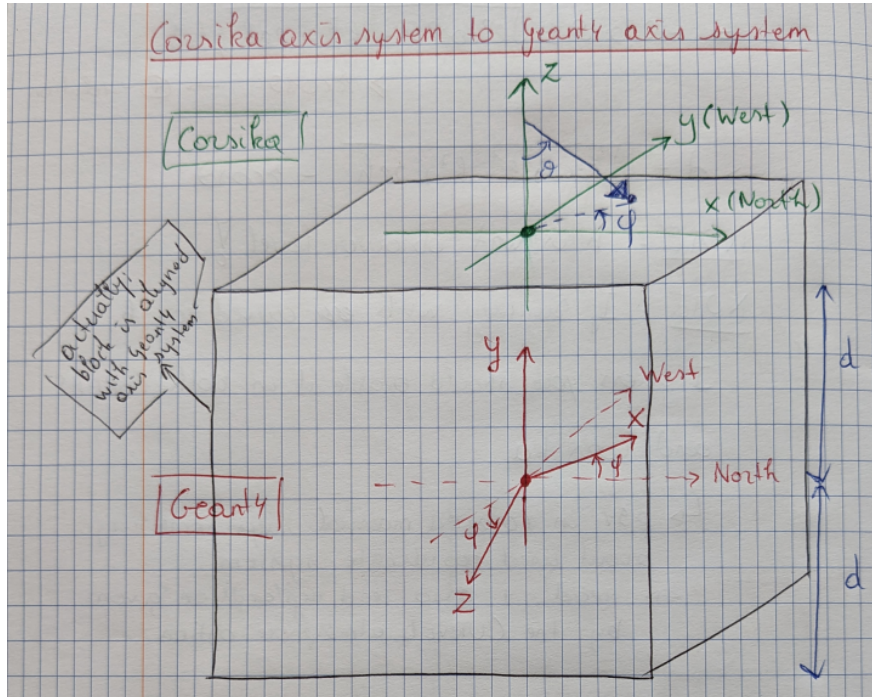 Corsika axis system to Geant4 axis system
Corsika
z
y (West)
ϑ
x (North)
φ
actually:
block is aligned
with Geant4
axis system
y
West
x
φ
North
Geant4
φ
z
d
d